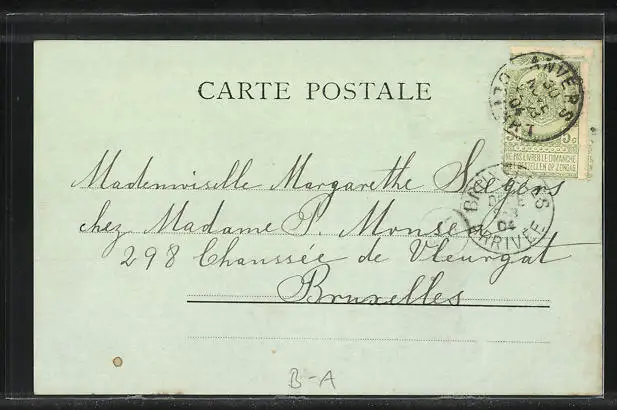 CARTE POSTALE
ANVERS
DÉPART
30
04
5c
NE PAS LIVRER LE DIMANCHE
NIET BESTELLEN OP ZONDAG
Mademoiselle Margarethe
04
ARRIVÉE
chez Madame P.
298 Chaussée de Vleurgat
Bruxelles
B-A